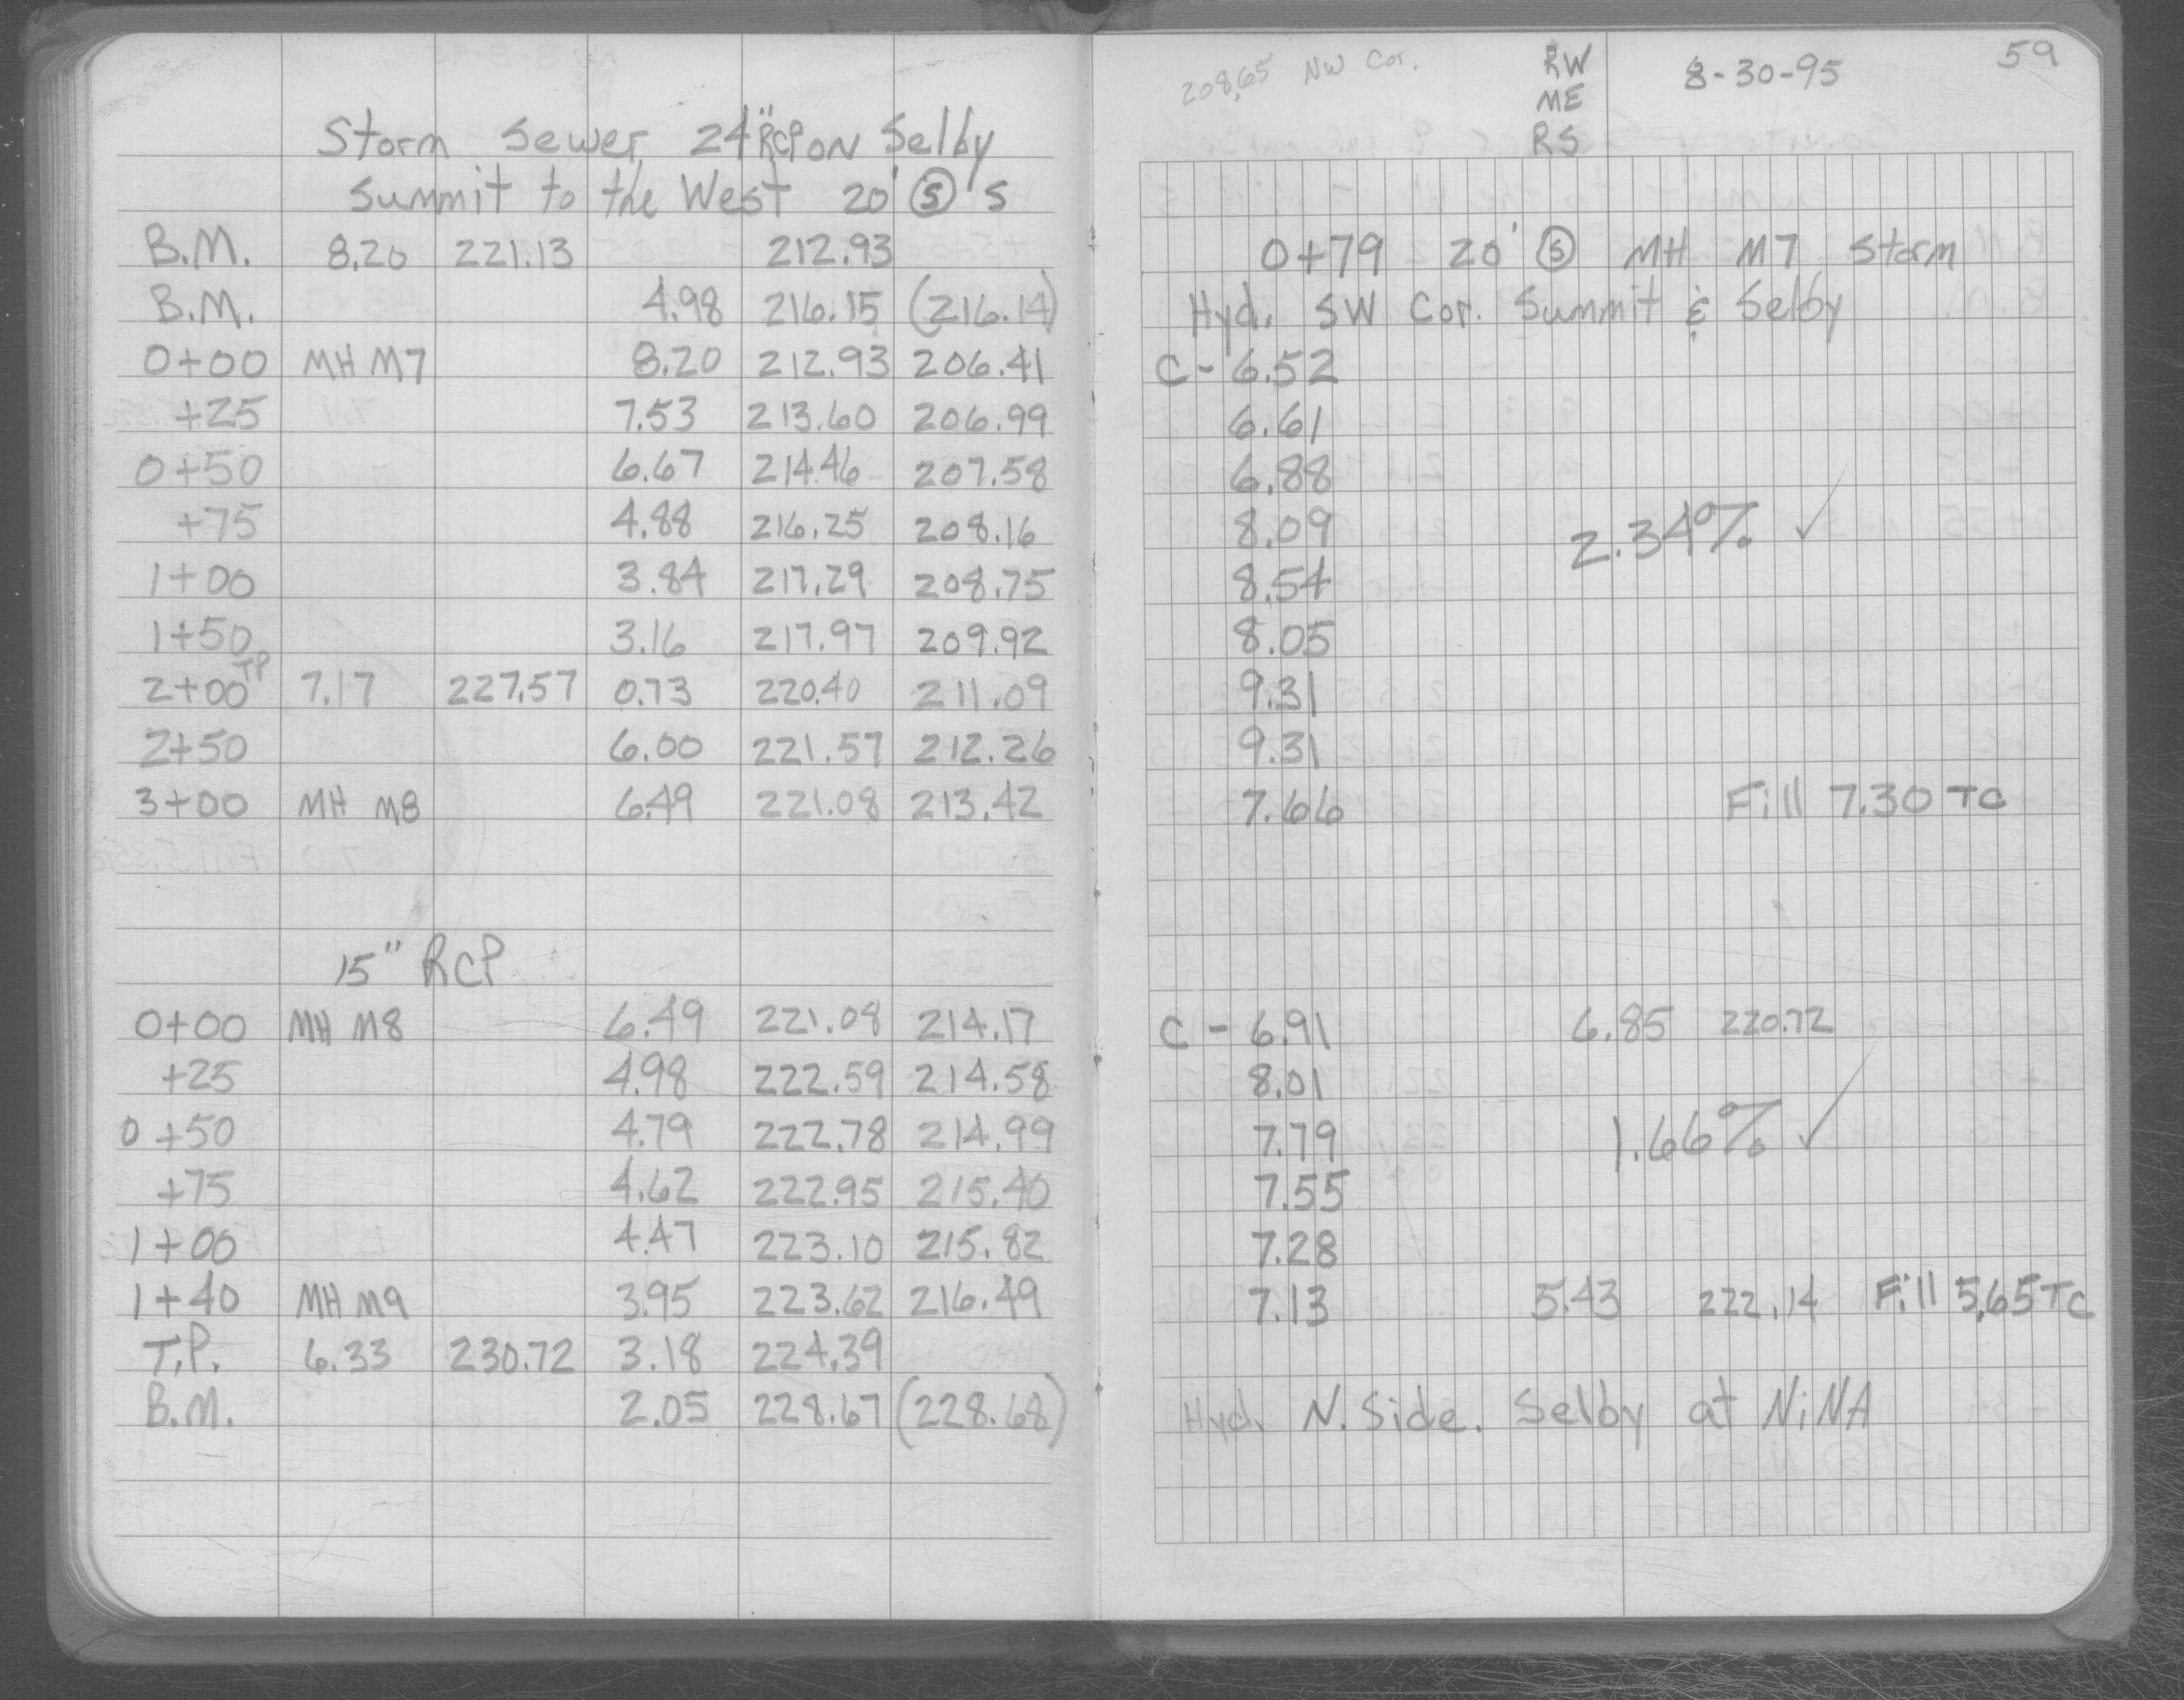 Storm Sewer 24" RCP ON Selby
Summit to the West 20' Ⓢ's
B.M. 8.20 221.13 212.93
B.M. 4.98 216.15 (216.14)
0+00 MH M7 8.20 212.93 206.41
+25 7.53 213.60 206.99
0+50 6.67 214.46 207.58
+75 4.88 216.25 208.16
1+00 3.84 217.29 208.75
1+50 3.16 217.97 209.92
2+00 TP 7.17 227.57 0.73 220.40 211.09
2+50 6.00 221.57 212.26
3+00 MH M8 6.49 221.08 213.42
15" RCP
0+00 MH M8 6.49 221.08 214.17
+25 4.98 222.59 214.58
0+50 4.79 222.78 214.99
+75 4.62 222.95 215.40
1+00 4.47 223.10 215.82
1+40 MH M9 3.95 223.62 216.49
T.P. 6.33 230.72 3.18 224.39
B.M. 2.05 228.67 (228.68)
208.65 NW Cor. RW 8-30-95 59
ME
RS
0+79 20' Ⓢ MH M7 Storm
Hyd. SW Cor. Summit & Selby
C - 6.52
6.61
6.88
8.09 2.34% ✓
8.54
8.05
9.31
9.31
7.66 Fill 7.30 TC
C - 6.91 6.85 220.72
8.01
7.79 1.66% ✓
7.55
7.28
7.13 5.43 222.14 Fill 5.65 TC
Hyd. N. Side. Selby at NiNA